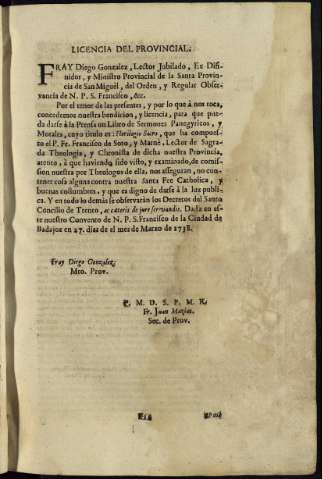 LICENCIA DEL PROVINCIAL.
FRAY Diego Gonzalez, Lector Jubilado, Ex Difi-
nidor, y Ministro Provincial de la Santa Provin-
cia de San Miguèl, del Orden, y Regular Obser-
vancia de N. P. S. Francisco, &c.
Por el tenor de las presentes, y por lo que à nos toca,
concedemos nuestra bendicion, y licencia, para que pue-
da darse à la Prensa un Libro de Sermones Panegyricos, y
Morales, cuyo titulo es: Florilogio Sacro, que ha compues-
to el P. Fr. Francisco de Soto, y Marnè, Lector de Sagra-
da Theologia, y Chronista de dicha nuestra Provincia,
atento, à que haviendo sido visto, y examinado, de comis-
sion nuestra por Theologos de ella, nos asseguran, no con-
tener cosa alguna contra nuestra Santa Fee Catholica, y
buenas costumbres, y que es digno de darse à la luz publi-
ca. Y en todo lo demàs se observaràn los Decretos del Santo
Concilio de Trento, ac cæteris de jure servandis. Dada en es-
te nuestro Convento de N. P. S. Francisco de la Ciudad de
Badajoz en 27. dias de el mes de Marzo de 1738.
Fray Diego Gonzalez,
Mro. Prov.
P. M. D. S. P. M. R.
Fr. Juan Matias.
Sec. de Prov.